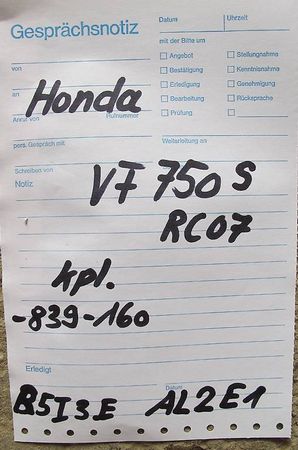 Gesprächsnotiz
Datum Uhrzeit
mit der Bitte um
von
Angebot Stellungnahme
Bestätigung Kenntnisnahme
an
Erledigung Genehmigung
Honda
Bearbeitung Rücksprache
Anruf von Rufnummer
Prüfung
pers. Gespräch mit
Weiterleitung an
Schreiben von
Notiz
VF 750 S
RC07
kpl.
-839-160
Erledigt
Datum
B5I3E AL2E1